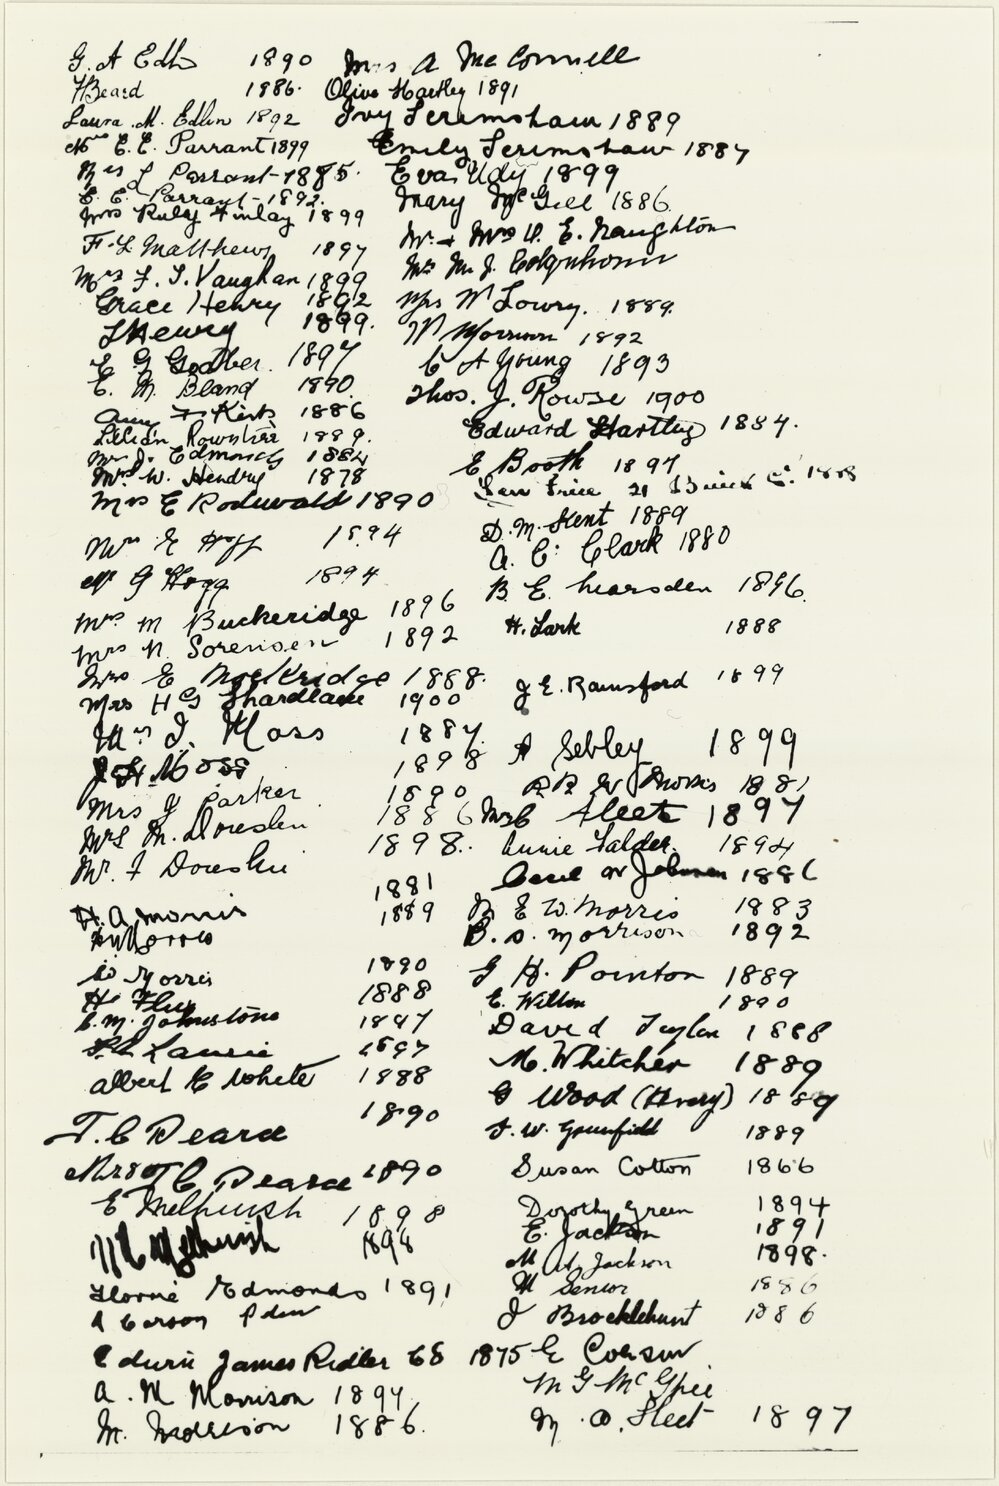 G. A Edlin 1890
H Beard 1886.
Laura. M. Edlin 1892
Mrs E. E. Parrant 1899
Mrs L Parrant 1885.
E. E. Parrant - 1892.
Mrs Ruby Finlay 1899
F. L. Matthews 1897
Mrs F. J. Vaughan 1899
Grace Henry 1892
J Henry 1899.
E G Godber. 1897
E. M. Bland 1890
Amy F Kirk 1886
Lilian Rowntree 1889.
Mr J. Edmonds 1884
Mrs W. Hendry 1878
Mrs E Rodwald 1890
Mrs E Hogg 1894
Mr G Hogg 1894
Mrs M Buckeridge 1896
Mrs N. Sorensen 1892
Mrs E Mockridge 1888.
Mrs H G Shardlane 1900
Mrs J. Moss 1887
J. H. Moss 1898
Mrs J Parker 1890
Mrs M. Doreslin 1886
Mr. F 1898.
H. A Morris 1881
1889
Morris 1890
H. 1888
C. M. Johnstone 1897
Laurie 1897
Albert E White 1888
T. C Pearce 1890
Mrs T C Pearce 1890
E Melhuish 1898
Melhuish 1898
Florrie Edmonds 1891
A Carson
Edwin James Ridler 68 1875
A. M Morrison 1897
M. Morrison 1886.
Mrs A McConnell
Olive Hartley 1891
Ivy Scrimshaw 1889
Emily Scrimshaw 1887
Eva Udy 1899
Mary McGill 1886
Mr. & Mrs W. E. Naughton
Mrs M. J. Colquhoun
Mrs W Lowry. 1889.
W Morrison 1892
C A Young 1893
Thos. J. Rowse 1900
Edward Hartley 1884.
E Booth 1897
Price 21 1888
D. M. Kent 1889
A. C. Clark 1880
B. E. Learsden 1896.
H. Lark 1888
J. E. Rainsford 1899
A Sebley 1899
W Morris 1881
Mrs C Fleet 1897
Annie Falder. 1894
Cecil W Johnson 1886
E W. Morris 1883
B. S. Morrison 1892
G H. Pointon 1889
E. Wilton 1890
David Taylor 1888
M. Whitcher 1889
G Wood (Harry) 1889
F. W. Greenfield 1889
Susan Cotton 1866
Dorothy Green 1894
E. Jackson 1891
M A. Jackson 1898.
M Senior 1886
J Brocklehurst 1886
E Corson
M G McGhie
M. O. Fleet 1897